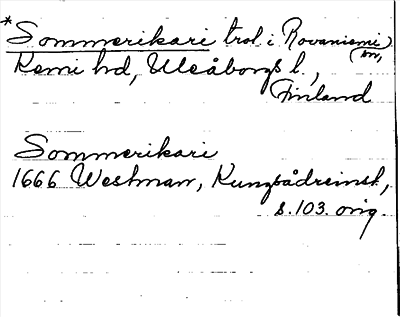 *Sommerikari trol. i Rovaniemi
(sn,)
Kemi hd, Uleåborgs l.,
Finland
Sommerikari
1666 Westman, Kungsådreinst.,
s. 103. orig.